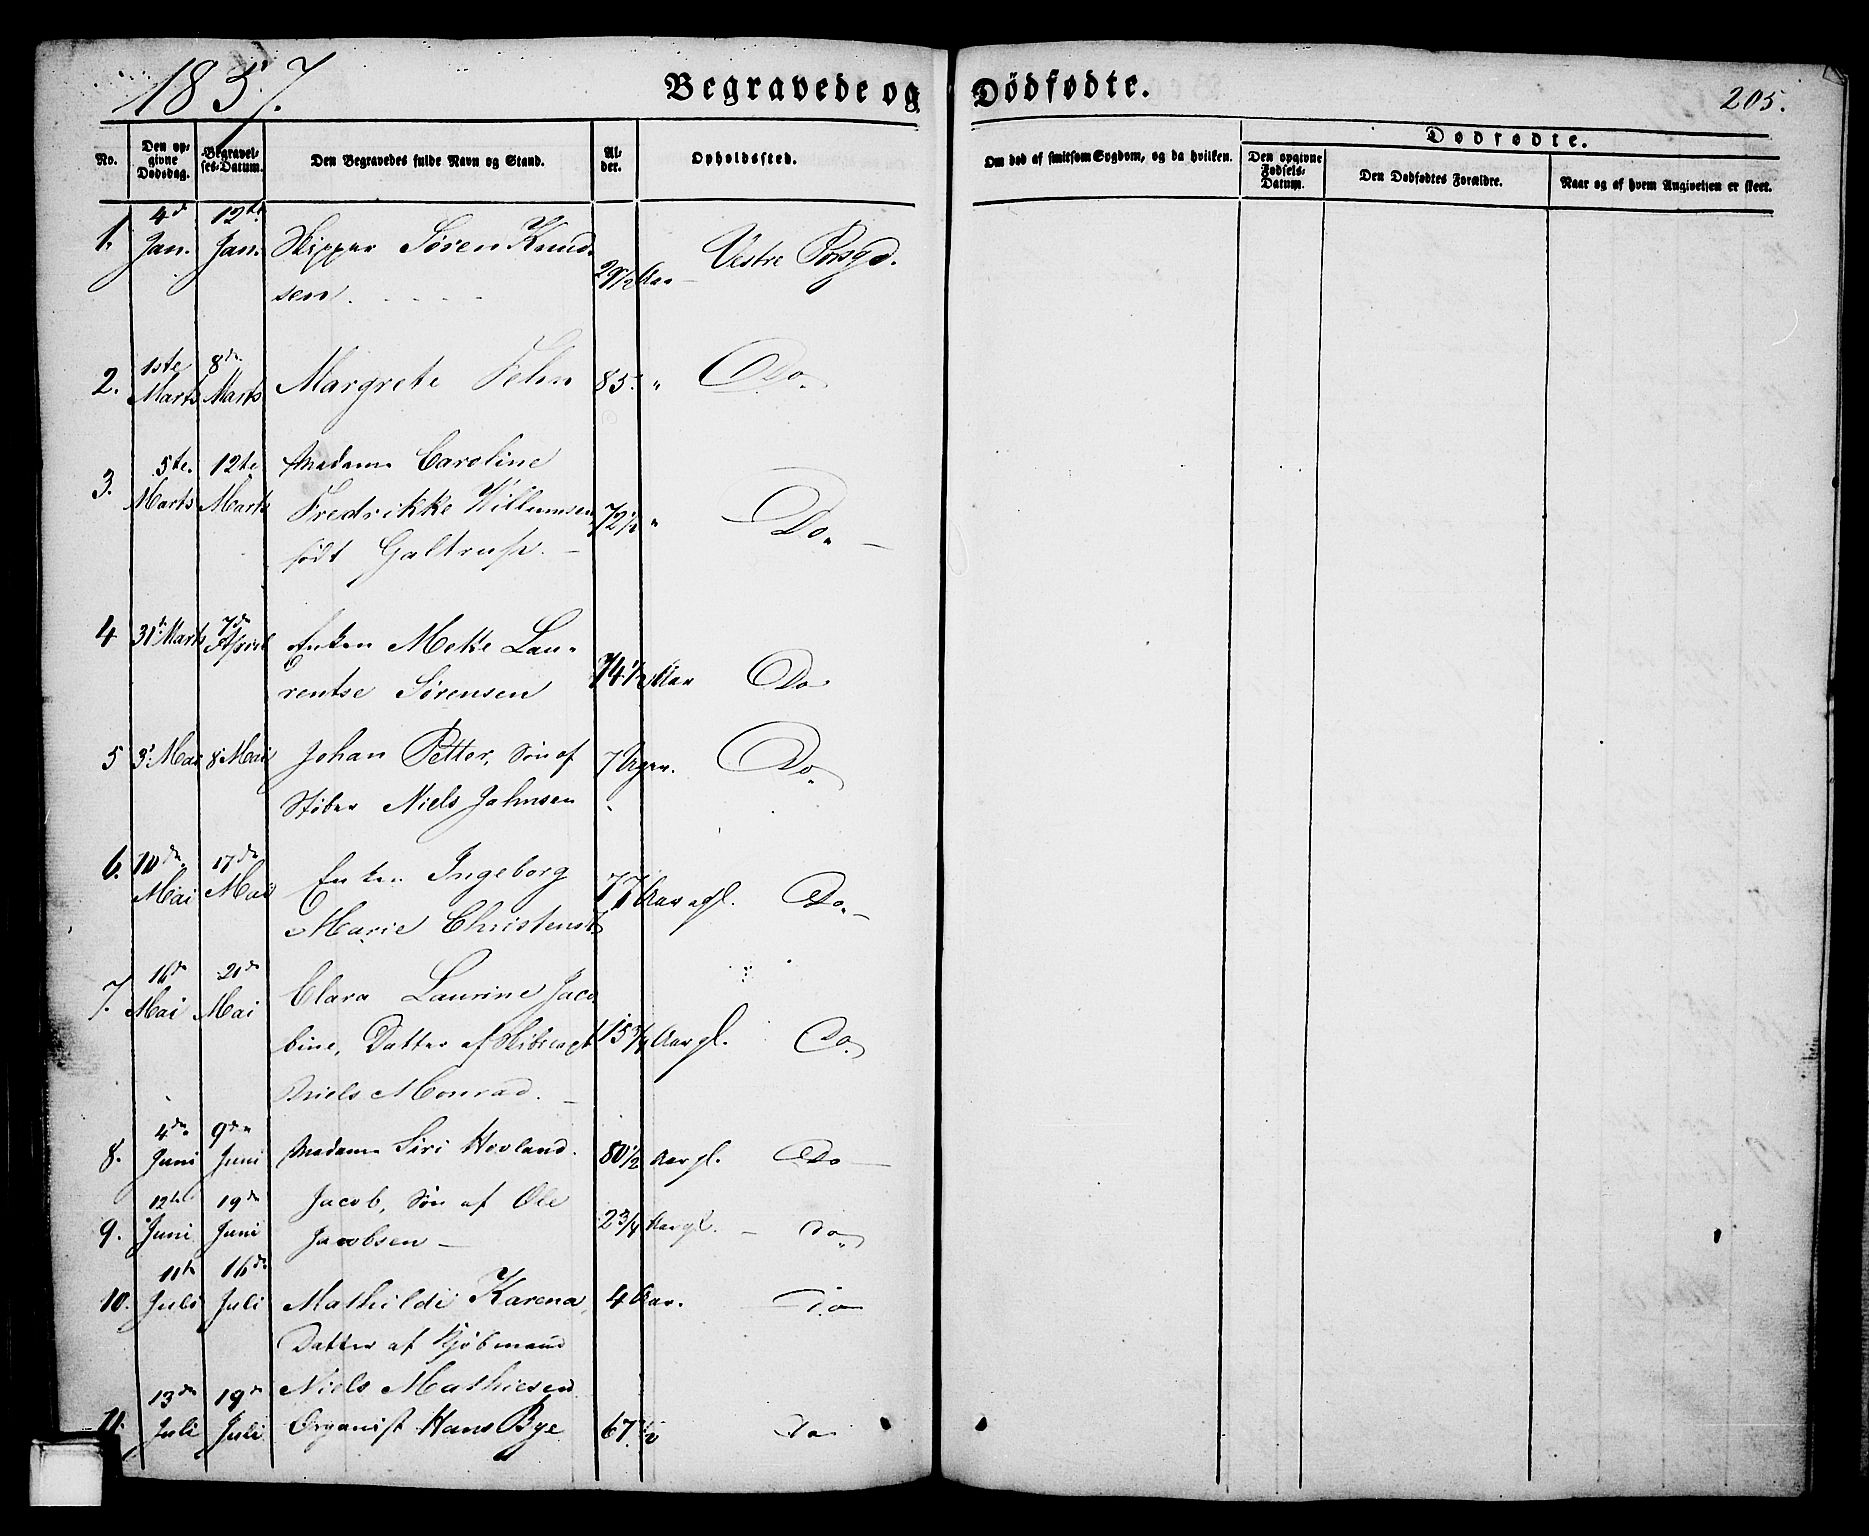 1837.
Begravede og Dödfødte.
205.
No.
Den op-
givne
Dödsdag.
Begravel-
ses-Datum.
Den Begravedes fulde Navn og Stand.
Al-
der.
Opholdssted.
Om død af smitsom Sygdom, og da hvilken.
Dødfødte.
Den opgivne
Fødsels-
Datum.
Den Dødfødtes Forældre.
Naar og af hvem Angivelsen er skeet.
1. 4d Jan. 12te Jan. Skipper Søren Knud-
sen 29 1/2 Aar Vestre Porsgd.
2. 1ste Marts 8de Marts Margrete Fehn 85 " Do
3. 5te Marts 12te Marts Madame Caroline
Fredrikke Willumsen 72 1/2 " Do
født Galtrup.
4 31te Marts 7de April Enken Mette Lau-
rentse Sørensen 74 1/2 Aar Do
5 3 Mai 8 Mai Johan Petter, Søn af 7 Uger. Do
Støber Niels Johnsen
6. 10de Mai 17de Mai Enken Ingeborg
Marie Christensd 77 Aar gl. Do
7. 16de Mai 20de Mai Clara Laurine Jaco
bine, Datter af Skibscapt 15 3/4 Aar gl. Do
Niels Monrad.
8. 4de Juni 9de Juni Madame Siri Hovland. 80 1/2 Aar gl. Do
9. 12te Juni 19de Juni Jacob, Søn af Ole
Jacobsen 2 3/4 Aar gl. Do
10. 11te Juli 16de Juli Mathilde Karena, 4 Aar. Do
Datter af Kjøbmand
Niels Mathiesen
11. 13de Juli 19de Juli Organist Hans Bye 67 1/2 Do